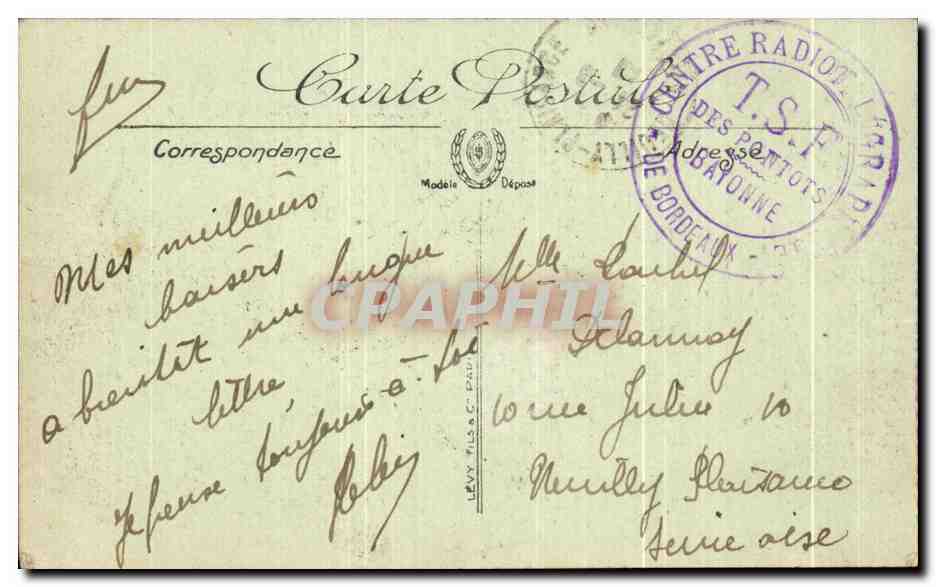 Carte Postale
Correspondance
Adresse
Modèle Déposé
CENTRE RADIOTELEGRAPH
DE BORDEAUX
T.S.F.
DES PONTOTS
BAYONNE
NEUILLY-PLAISANCE
Mes meilleurs
baisers
a bientôt une longue
lettre,
Je pense toujours à toi
Melle
Delannoy
10 rue Jules 10
Neuilly Plaisance
Seine oise
LEVY FILS & Cie PARIS
CPAPHIL